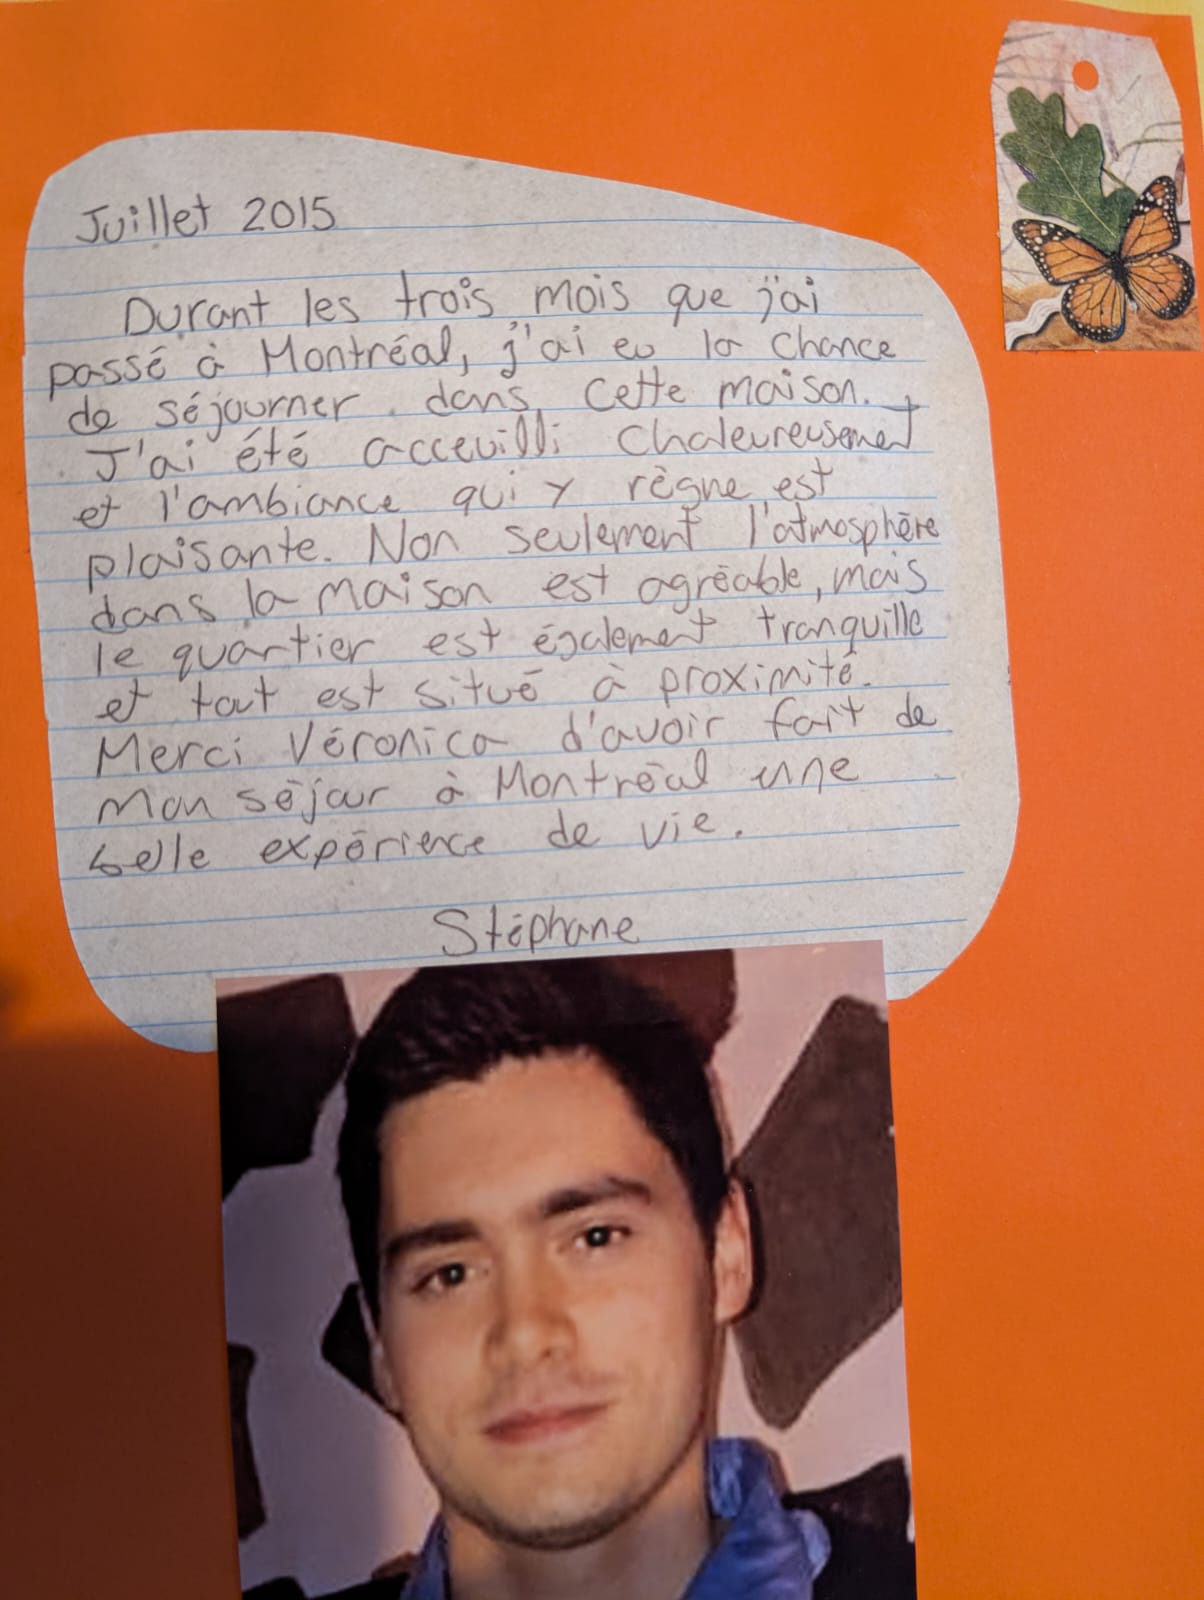 Juillet 2015
Durant les trois mois que j'ai
passé à Montréal, j'ai eu la chance
de séjourner dans cette maison.
J'ai été acceuilli chaleureusement
et l'ambiance qui y règne est
plaisante. Non seulement l'atmosphère
dans la maison est agréable, mais
le quartier est également tranquille
et tout est situé à proximité.
Merci Véronica d'avoir fait de
mon séjour à Montréal une
belle expérience de vie.
Stéphane